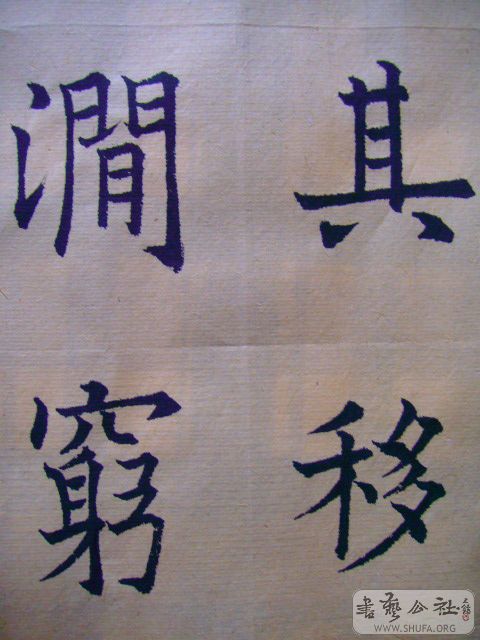 其移
澗窮
書藝公社
WWW.SHUFA.ORG